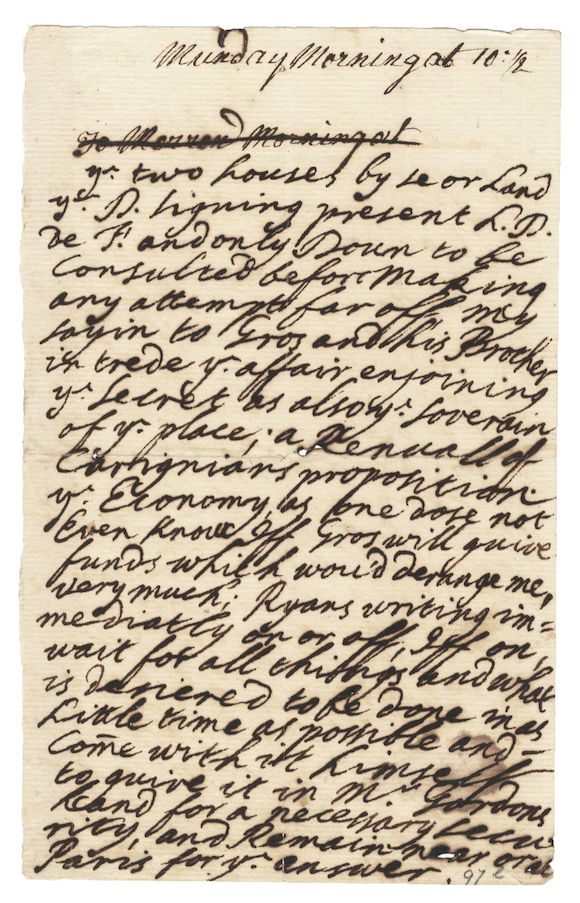 Munday Morning at 10: ½
To Morrow Morning at
yᵉ two houses by se or Land
yᵉ D. signing present L. D.
de F. and only Doun to be
Consulted before Making
any attempt far off, my
sayin to Gros and his Brother
trede yᵉ affair enjoining
yᵉ Secret as also yᵉ Soverain
of yᵉ place; a Renuall of
Carignians proposition
yᵉ Economy, as one dose not
Even know Iff Gros will guive
funds which wou'd derange me,
very much; Ryans writing im=
mediatly on or off, Iff on,
wait for all things and what
is desiered to be done in as
Little time as possible and=
Come with it himself
to guive it in Mʳ Gordons
Hand for a necessary secu
rity, and Remain near or at
Paris for yᵉ answer.
972